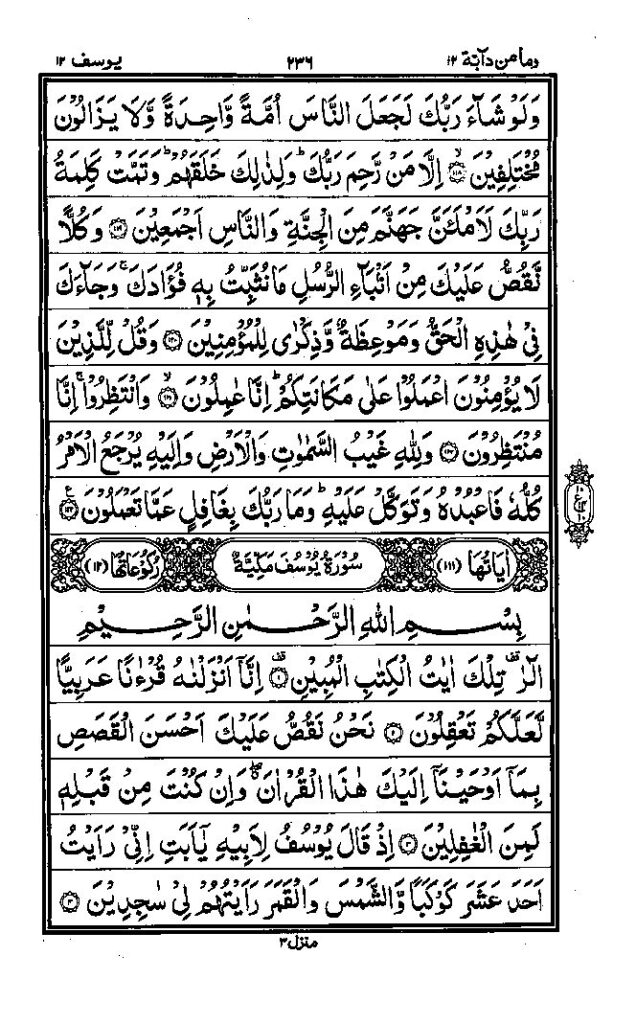 وما من دآبة ١٢
٢٣٦
يوسف ١٢
وَلَوْ شَآءَ رَبُّكَ لَجَعَلَ النَّاسَ اُمَّةً وَّاحِدَةً وَّلَا يَزَالُوْنَ
مُخْتَلِفِيْنَ ۙ﴿١١٨﴾ اِلَّا مَنْ رَّحِمَ رَبُّكَ ؕ وَلِذٰلِكَ خَلَقَهُمْ ؕ وَتَمَّتْ كَلِمَةُ
رَبِّكَ لَاَمْلَـَٔنَّ جَهَنَّمَ مِنَ الْجِنَّةِ وَالنَّاسِ اَجْمَعِيْنَ ﴿١١٩﴾ وَكُلًّا
نَّقُصُّ عَلَيْكَ مِنْ اَنْۢبَآءِ الرُّسُلِ مَا نُثَبِّتُ بِهٖ فُؤَادَكَ ۚ وَجَآءَكَ
فِيْ هٰذِهِ الْحَقُّ وَمَوْعِظَةٌ وَّذِكْرٰى لِلْمُؤْمِنِيْنَ ﴿١٢٠﴾ وَقُلْ لِّلَّذِيْنَ
لَا يُؤْمِنُوْنَ اعْمَلُوْا عَلٰى مَكَانَتِكُمْ ؕ اِنَّا عٰمِلُوْنَ ۙ﴿١٢١﴾ وَانْتَظِرُوْا ۚ اِنَّا
مُنْتَظِرُوْنَ ﴿١٢٢﴾ وَلِلّٰهِ غَيْبُ السَّمٰوٰتِ وَالْاَرْضِ وَاِلَيْهِ يُرْجَعُ الْاَمْرُ
كُلُّهٗ فَاعْبُدْهُ وَتَوَكَّلْ عَلَيْهِ ؕ وَمَا رَبُّكَ بِغَافِلٍ عَمَّا تَعْمَلُوْنَ ﴿١٢٣﴾ ع
اٰيَاتُهَا (١١١)
سُوْرَةُ يُوْسُفَ مَكِّيَّةٌ
رُكُوْعَاتُهَا (١٢)
بِسْمِ اللهِ الرَّحْمٰنِ الرَّحِيْمِ
الٓرٰ ۟ تِلْكَ اٰيٰتُ الْكِتٰبِ الْمُبِيْنِ ۟﴿١﴾ اِنَّاۤ اَنْزَلْنٰهُ قُرْءٰنًا عَرَبِيًّا
لَّعَلَّكُمْ تَعْقِلُوْنَ ﴿٢﴾ نَحْنُ نَقُصُّ عَلَيْكَ اَحْسَنَ الْقَصَصِ
بِمَاۤ اَوْحَيْنَاۤ اِلَيْكَ هٰذَا الْقُرْاٰنَ ۖ وَاِنْ كُنْتَ مِنْ قَبْلِهٖ
لَمِنَ الْغٰفِلِيْنَ ﴿٣﴾ اِذْ قَالَ يُوْسُفُ لِاَبِيْهِ يٰۤاَبَتِ اِنِّيْ رَاَيْتُ
اَحَدَ عَشَرَ كَوْكَبًا وَّالشَّمْسَ وَالْقَمَرَ رَاَيْتُهُمْ لِيْ سٰجِدِيْنَ ﴿٤﴾
منزل ٣